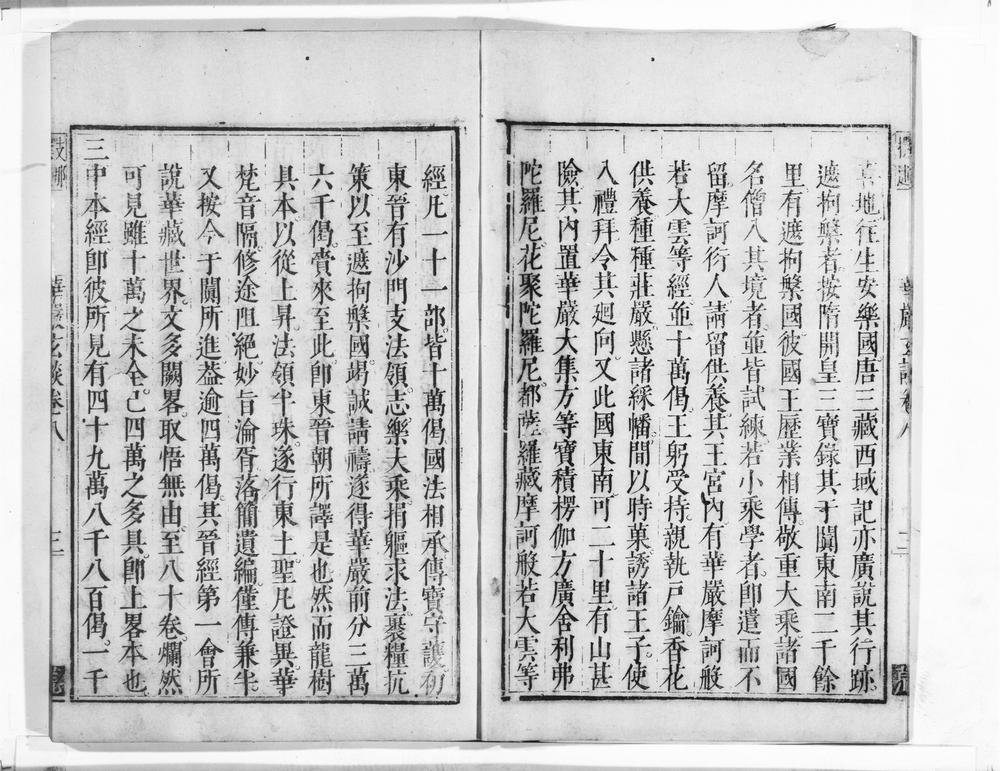 喜地往生安樂國唐三藏西域記亦廣說其行跡
遮拘槃者按隋開皇三寶錄其于闐東南二千餘
里有遮拘槃國彼國王歷業相傳敬重大乘諸國
名僧入其境者並皆試練若小乘學者卽遣而不
留摩訶衍人請留供養其王宮內有華嚴摩訶般
若大雲等經並十萬偈王躬受持親執戶鑰香花
供養種種莊嚴懸諸綵幡間以時菓誘諸王子使
入禮拜令其廻向又此國東南可二十里有山甚
險其內置華嚴大集方等寶積楞伽方廣舍利弗
陀羅尼花聚陀羅尼都薩羅藏摩訶般若大雲等
經凡一十一部皆十萬偈國法相承傳寶守護初
東晉有沙門支法領志樂大乘捐軀求法裹糧杭
策以至遮拘槃國竭誠請禱遂得華嚴前分三萬
六千偈賷來至此卽東晉朝所譯是也然而龍樹
具本以從上昇法領半珠遂行東土聖凡證異華
梵音隔修途阻絕妙旨淪胥落簡遺編僅傳兼半
又按今于闐所進葢逾四萬偈其晉經第一會所
說華藏世界文多闕畧取悟無由至八十卷爛然
可見雖十萬之未全已四萬之多具卽上畧本也
三中本經卽彼所見有四十九萬八千八百偈一千
華嚴玄談卷八